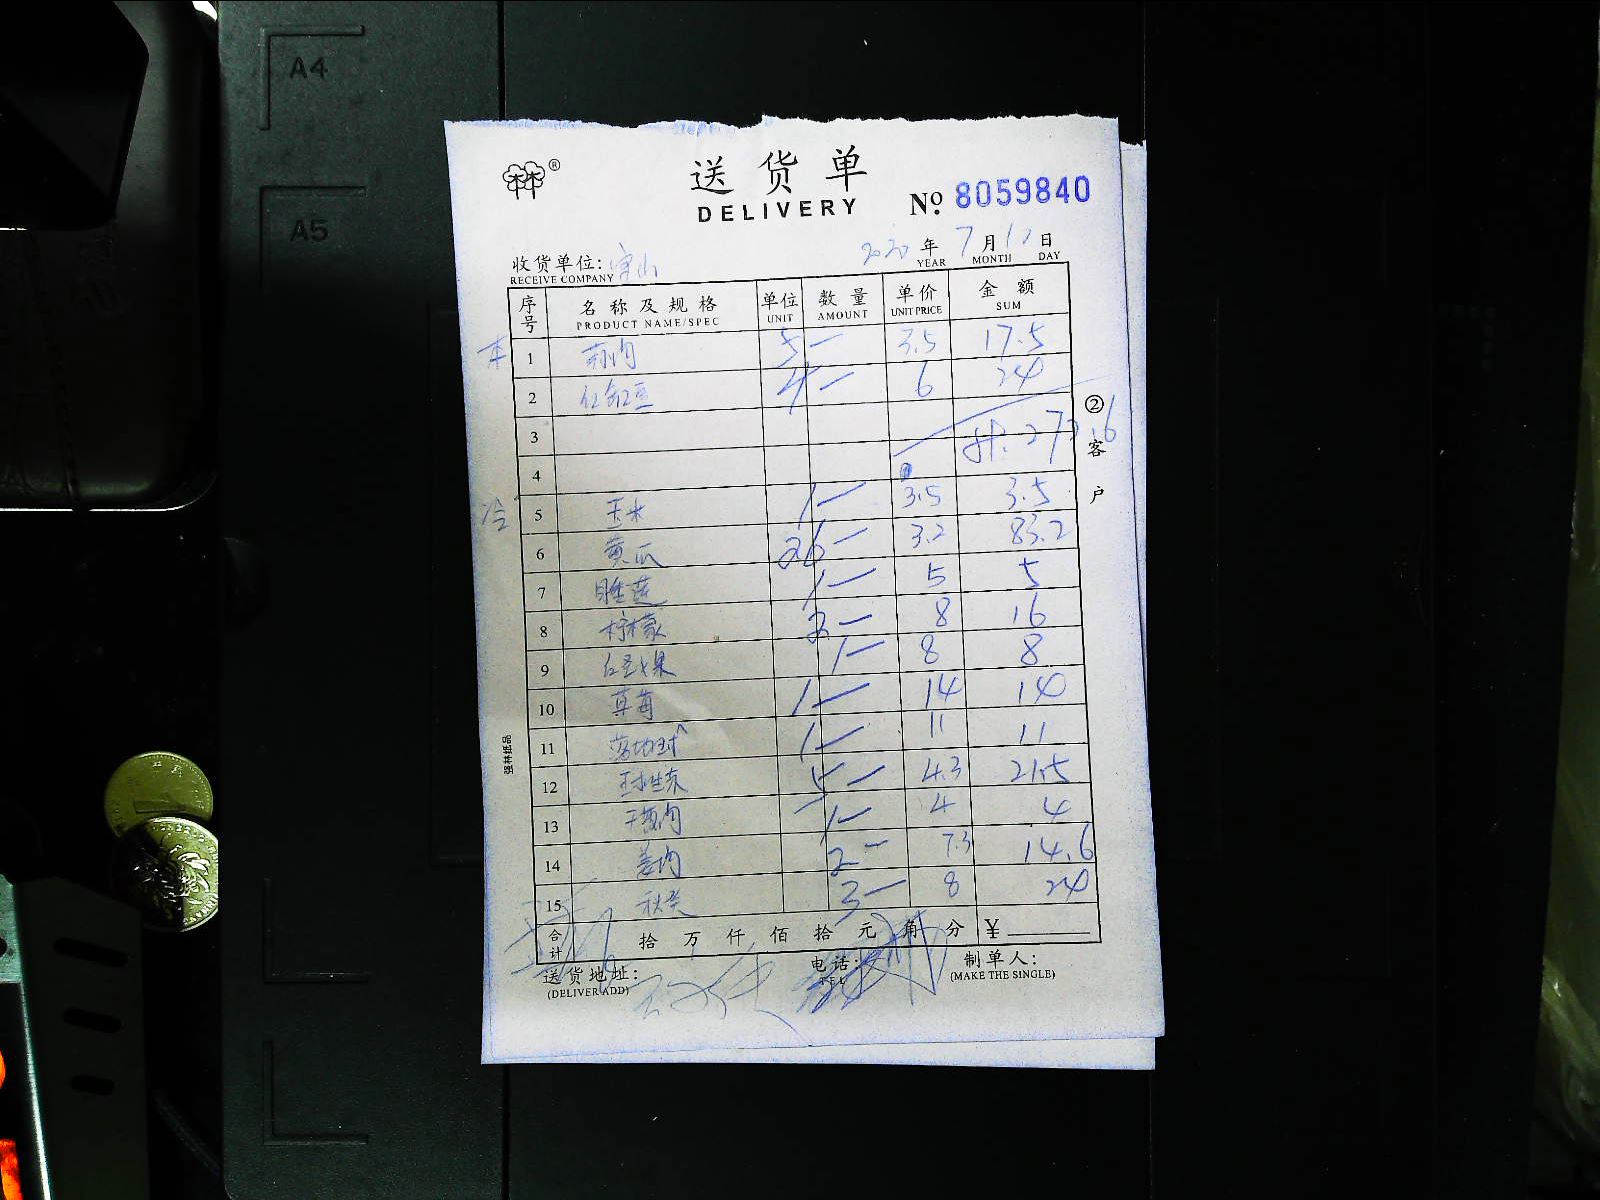 A4
A5
®
送货单
DELIVERY
№ 8059840
2020 年 7 月 12 日
YEAR MONTH DAY
收货单位:
RECEIVE COMPANY
序号 名称及规格 单位 数量 单价 金额
PRODUCT NAME/SPEC UNIT AMOUNT UNIT PRICE SUM
1 5 — 3.5 17.5
2 红豇豆 4 — 6 24
3
4 273.6
②客户
冷 5 玉米 1 — 3.5 3.5
6 黄瓜 26 — 3.2 83.2
7 睡莲 1 — 5 5
8 柠檬 2 — 8 16
9 红圣女果 1 — 8 8
10 草莓 1 — 14 14
11 1 — 11 11
12 5 — 4.3 21.5
13 1 — 4 4
14 姜肉 2 — 7.3 14.6
15 秋葵 3 — 8 24
合计 拾 万 仟 佰 拾 元 角 分 ¥
送货地址: 电话: 制单人:
(DELIVER ADD) TEL (MAKE THE SINGLE)
强林纸品